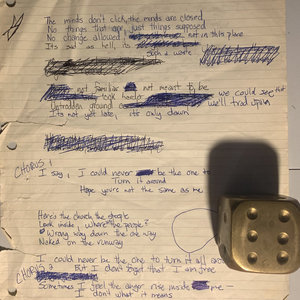 The minds don't click, the minds are closed
No things that are, just things supposed
No change allowed, not in this place
Its sad as hell, its such a waste
not familiar not meant to be
took hands we could see that
Untrodden ground we'll tread upon
Its not yet late, its only dawn
CHORUS 1
I say, I could never be the one to
Turn it around
Hope you're not the same as me
Here's the church, the steeple
Look inside, where's the people?
Wrong way down the one way
Naked on the runway
I could never be the one to turn it all around
CHORUS 2
But I don't forget that I am free
Sometimes I feel the anger rise inside me -
I don't what it means